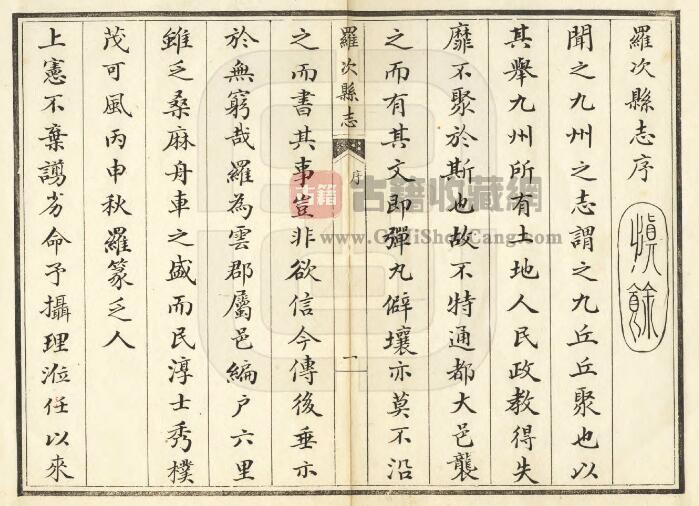 羅次縣志序
慎餘
聞之九州之志謂之九丘丘聚也以
其舉九州所有土地人民政教得失
靡不聚於斯也故不特通都大邑襲
之而有其文即彈丸僻壤亦莫不沿
羅次縣志
序
一
之而書其事豈非欲信今傳後垂示
於無窮哉羅為雲郡屬邑編户六里
雖乏桑麻舟車之盛而民淳士秀樸
茂可風丙申秋羅篆乏人
上憲不棄謭劣命予攝理涖任以來
古籍
古籍收藏網
www.GuJiShouCang.com